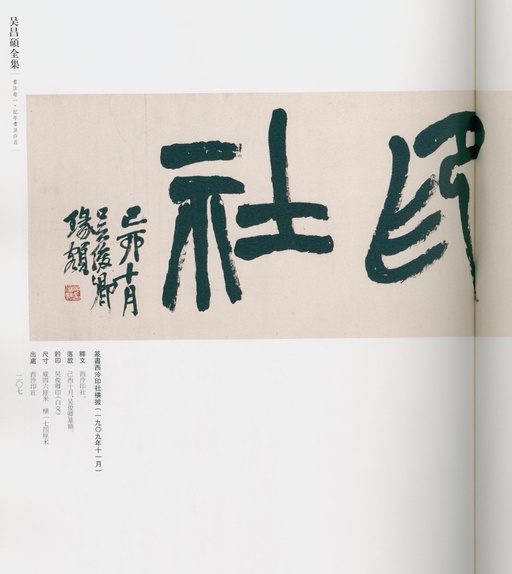 吴昌碩全集
書法卷一·紀年書法作品
印社
己酉十月
吳俊卿
篆額
篆書西泠印社橫額(一九〇九年十一月)
釋文 西泠印社。
落款 己酉十月,吴俊卿篆額。
鈐印 吴俊卿印(白文)
尺寸 縱四六厘米 橫一七四厘米
出處 西泠印社
一〇七